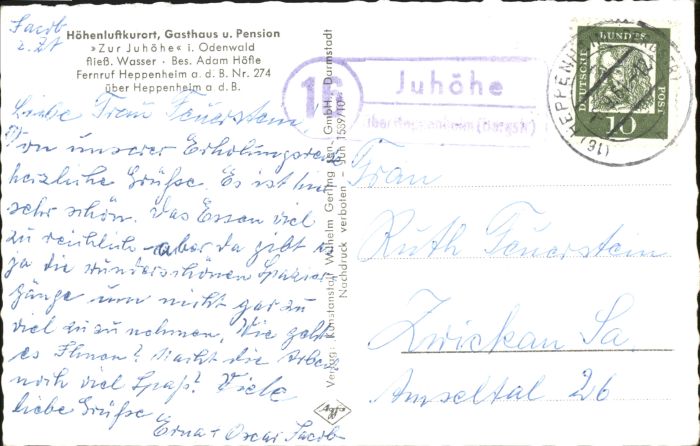 Jacob
z. Zt
Höhenluftkurort, Gasthaus u. Pension
»Zur Juhöhe« i. Odenwald
fließ. Wasser · Bes. Adam Höfle
Fernruf Heppenheim a. d. B. Nr. 274
über Heppenheim a. d. B.
Liebe Frau Feuerstein,
Von unserer Erholungsreise
herzliche Grüße. Es ist hier
sehr schön. Das Essen viel
zu reichlich - aber da gibt es
ja die wunderschönen Spazier
gänge um nicht gar zu
viel zuzunehmen. Wie geht
es Ihnen? Macht die Arbeit
noch viel Spaß? Viele
liebe Grüße
Erna + Oscar Jacob
Verlag: Kunstanstalt Wilhelm Gerling jun. GmbH., Darmstadt
Nachdruck verboten - 1539/10
Agfa
16
Juhöhe
über Heppenheim (Bergstr)
DEUTSCHE BUNDESPOST
10
(16) HEPPENHEIM
Frau
Ruth Feuerstein
Zwickau Sa
Amseltal 26